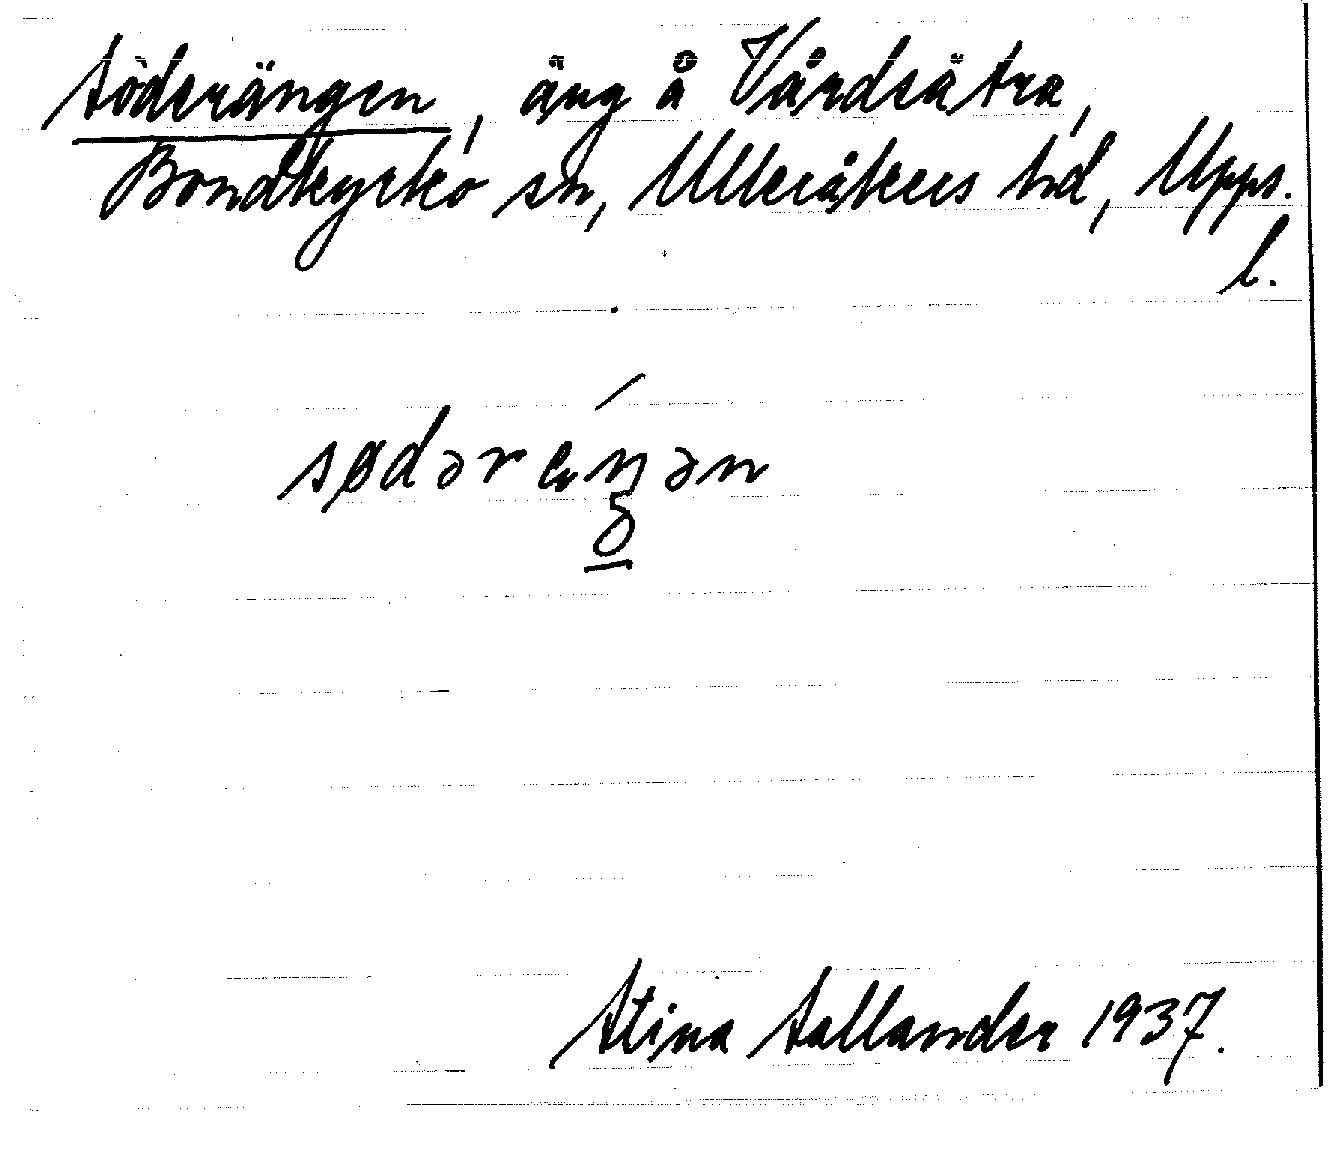 Söderängen, äng å Vårdsätra,
Bondkyrko sn, Ulleråkers hd, Upps.
l.
sødərä́ŋən
Stina Sallander 1937.